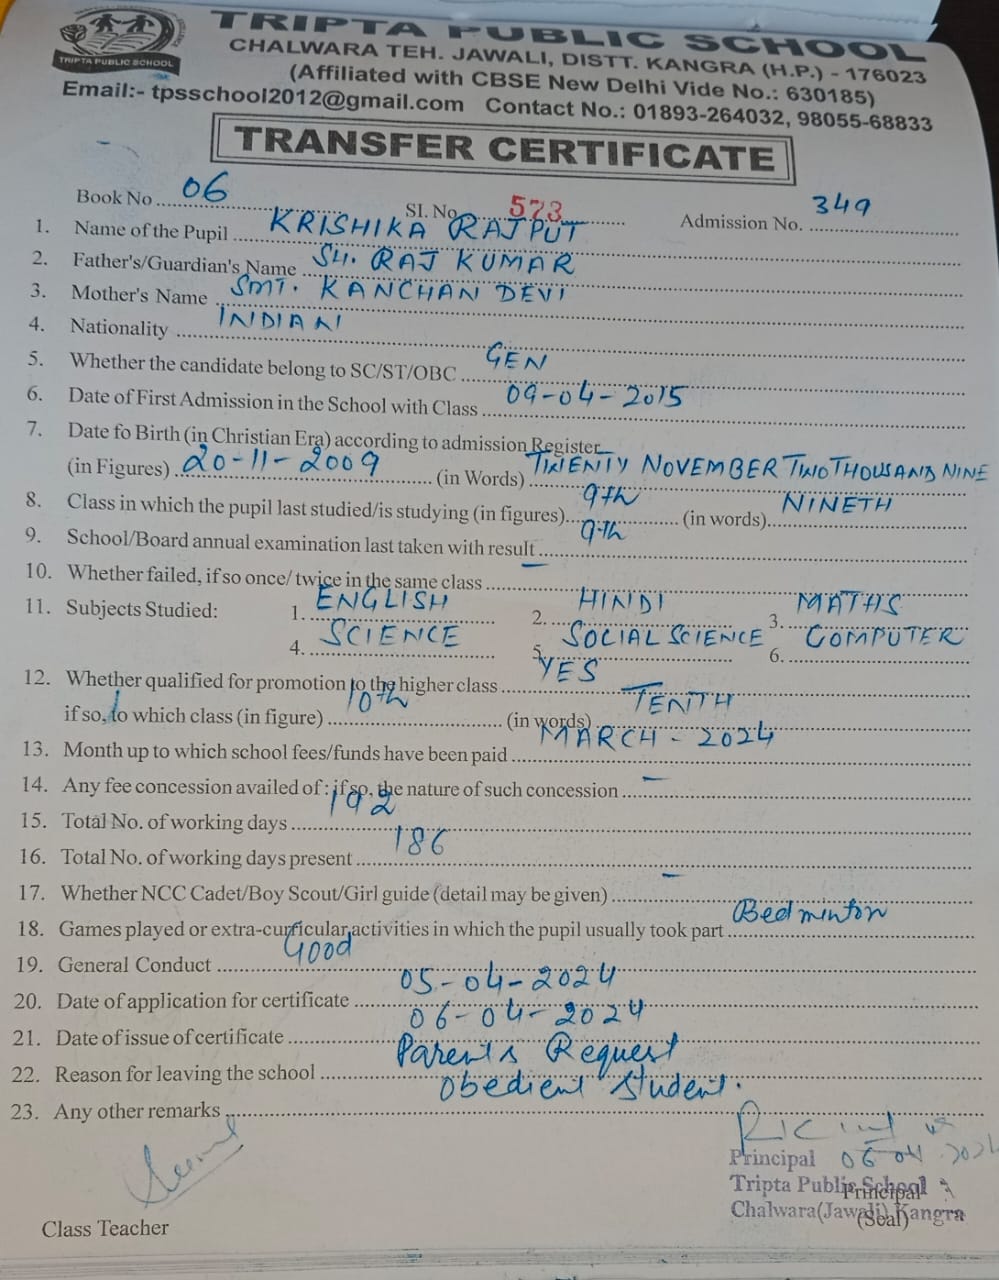 TRIPTA PUBLIC SCHOOL
TRIPTA PUBLIC SCHOOL
CHALWARA TEH. JAWALI, DISTT. KANGRA (H.P.) - 176023
(Affiliated with CBSE New Delhi Vide No.: 630185)
Email:- tpsschool2012@gmail.com Contact No.: 01893-264032, 98055-68833
TRANSFER CERTIFICATE
Book No 06 SI. No. 573 Admission No. 349
1. Name of the Pupil KRISHIKA RAJPUT
2. Father's/Guardian's Name SH. RAJ KUMAR
3. Mother's Name SMT. KANCHAN DEVI
4. Nationality INDIAN
5. Whether the candidate belong to SC/ST/OBC GEN
6. Date of First Admission in the School with Class 09-04-2015
7. Date fo Birth (in Christian Era) according to admission Register
(in Figures) 20-11-2009 (in Words) TWENTY NOVEMBER TWO THOUSAND NINE
8. Class in which the pupil last studied/is studying (in figures) 9th (in words) NINETH
9. School/Board annual examination last taken with result 9th
10. Whether failed, if so once/ twice in the same class —
11. Subjects Studied: 1. ENGLISH 2. HINDI 3. MATHS
4. SCIENCE 5. SOCIAL SCIENCE 6. COMPUTER
12. Whether qualified for promotion to the higher class YES
if so, to which class (in figure) 10th (in words) TENTH
13. Month up to which school fees/funds have been paid MARCH - 2024
14. Any fee concession availed of : if so, the nature of such concession —
15. Total No. of working days 192
16. Total No. of working days present 186
17. Whether NCC Cadet/Boy Scout/Girl guide (detail may be given) —
18. Games played or extra-curricular activities in which the pupil usually took part Bedminton
19. General Conduct Good
20. Date of application for certificate 05-04-2024
21. Date of issue of certificate 06-04-2024
22. Reason for leaving the school Parents Request
23. Any other remarks Obedient Student.
Principal 06 04 2024
Tripta Public School
Principal
Chalwara(Jawali) Kangra
(Seal)
Class Teacher